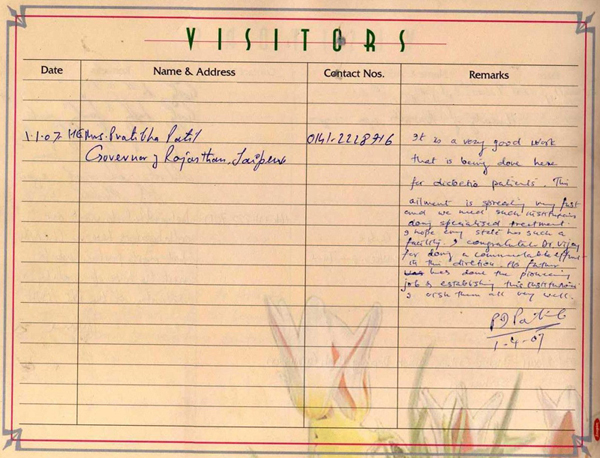 VISITORS
Date Name & Address Contact Nos. Remarks
1.1.07 HE Mrs. Pratibha Patil 0141-2228716
Governor of Rajasthan, Jaipur
It is a very good work
that is being done here
for diabetic patients. This
ailment is spreading very fast
and we need such institutions
doing specialised treatment.
I hope every state has such a
facility. I congratulate Dr. Vijay
for doing a commendable effort
in this direction. His father
has done the pioneering
job of establishing this institution
I wish them all very well.
1-4-07